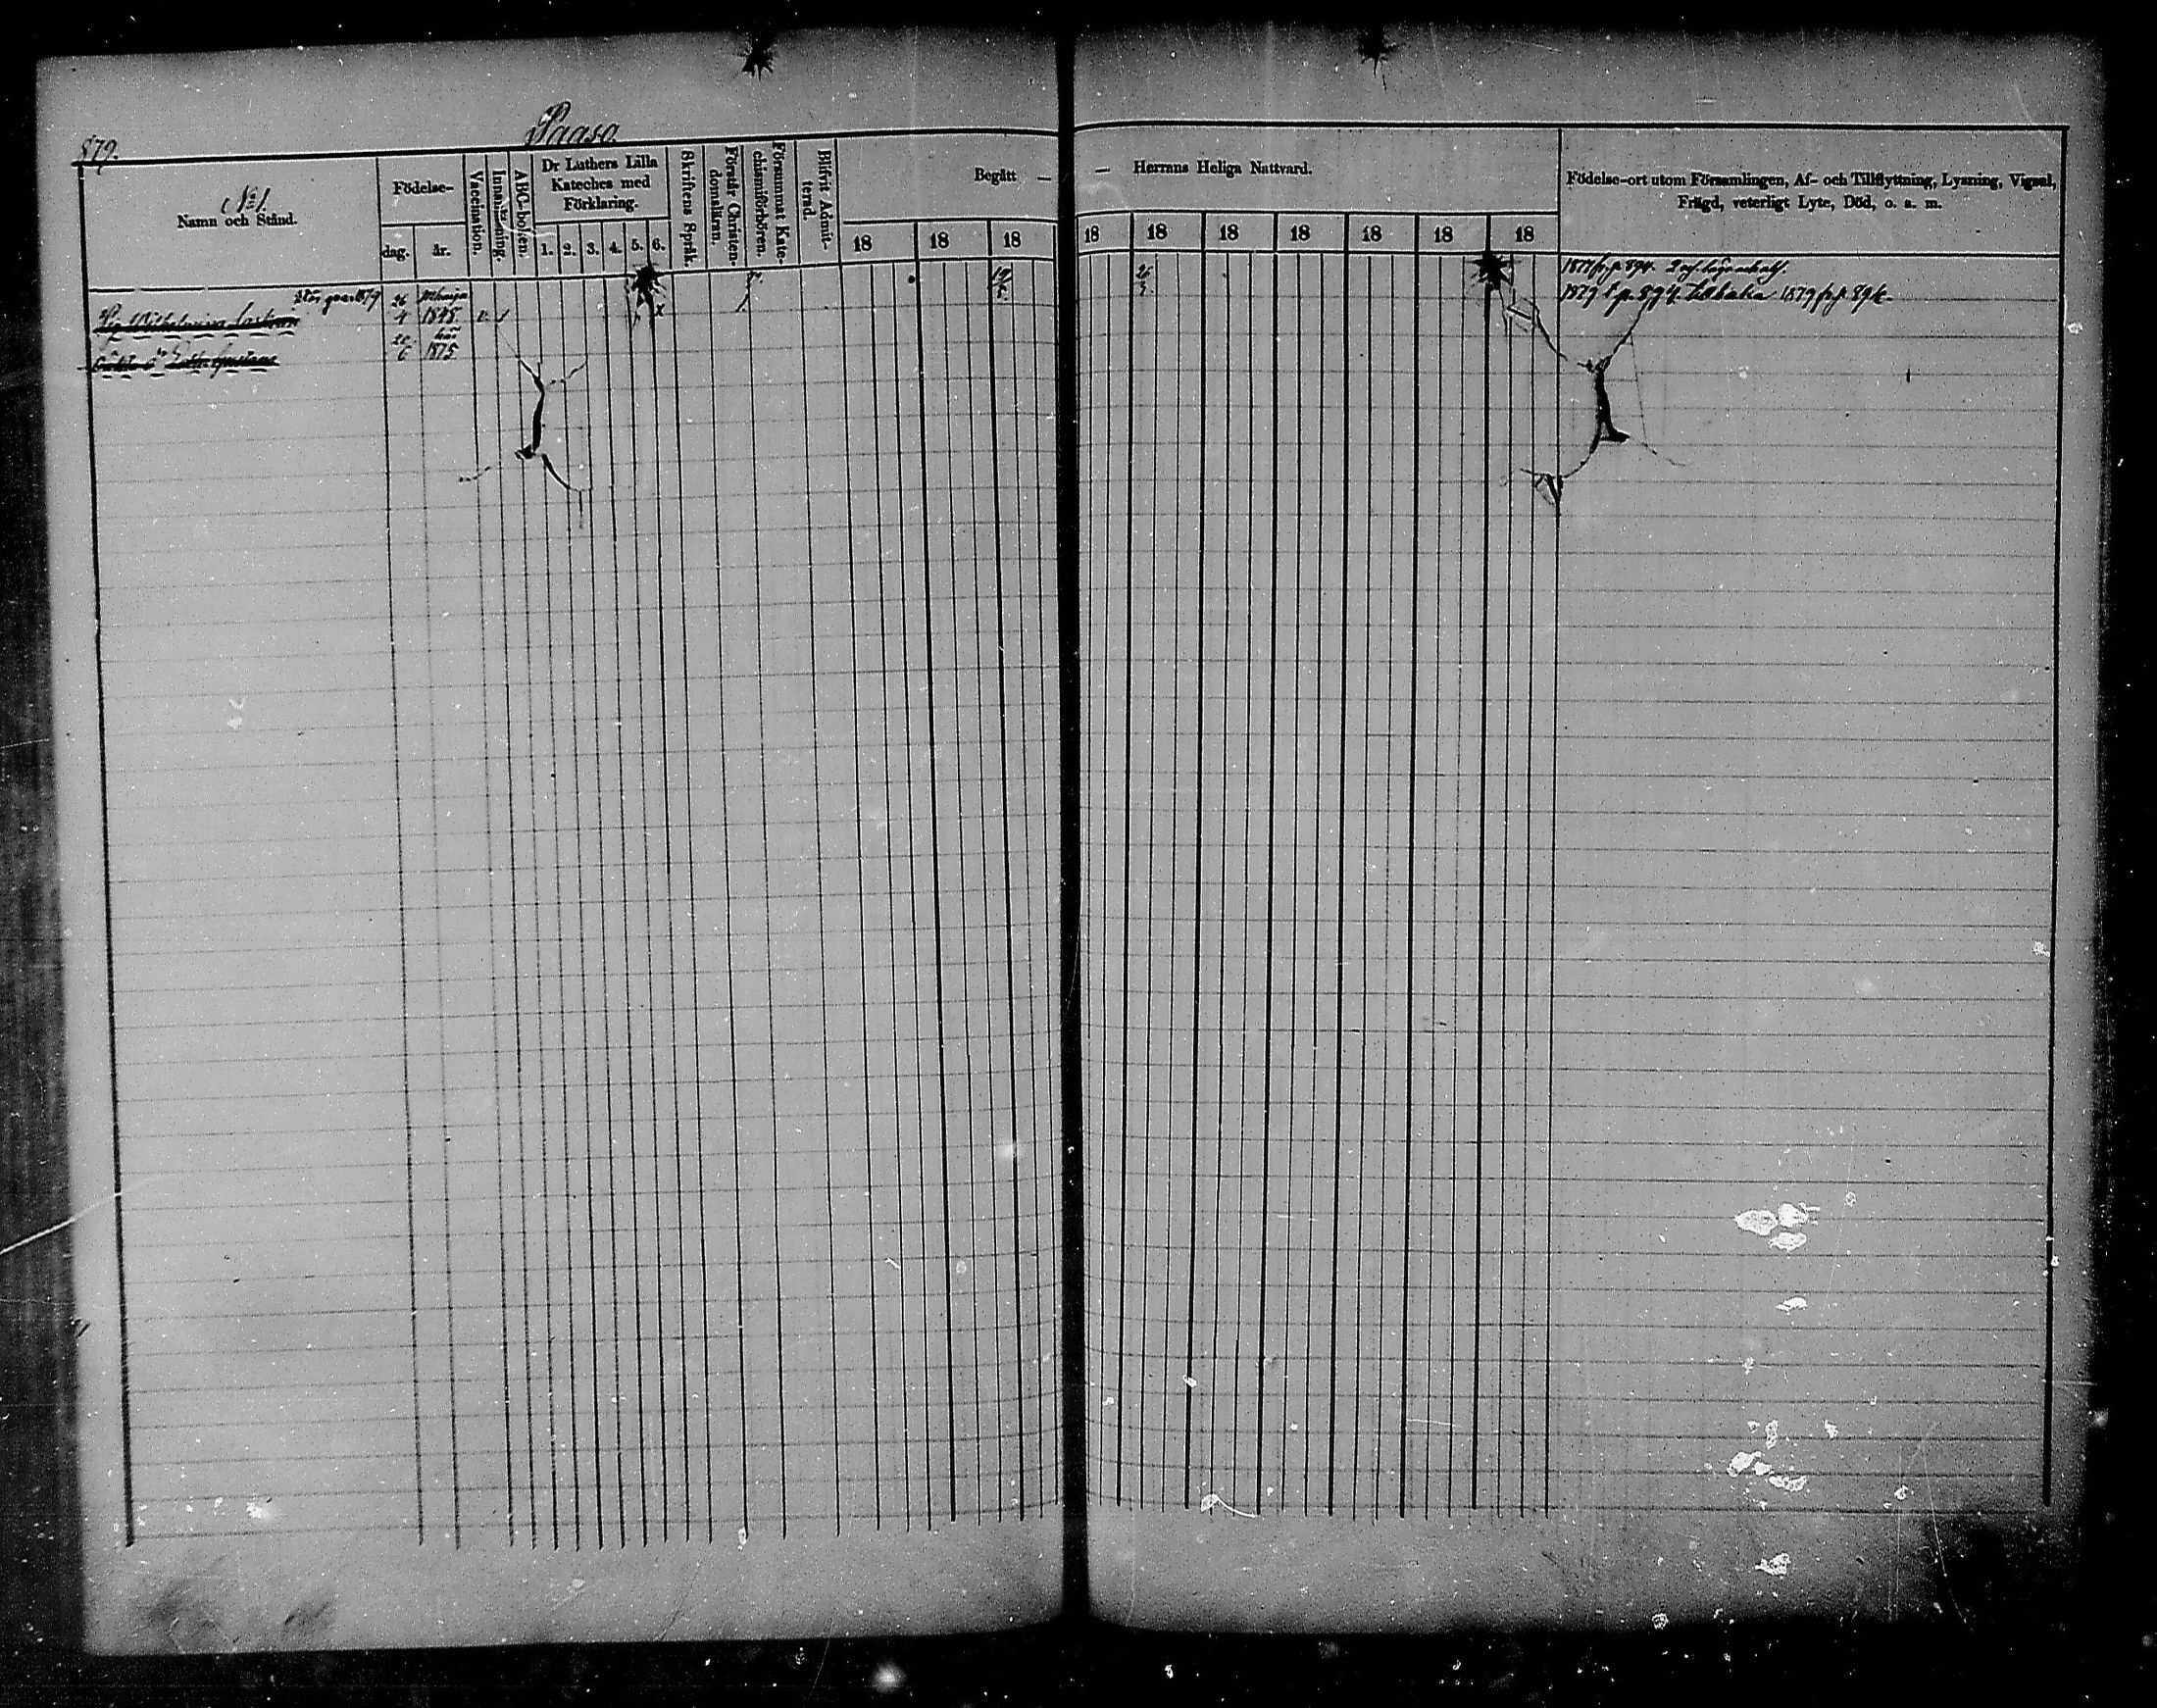 879.
Paaso.
№ 1.
Namn och Stånd.
Födelse-
dag.
år.
Vaccination.
Innanläsning.
ABC-boken.
Dr Luthers Lilla
Kateches med
Förklaring.
1. 2. 3. 4. 5. 6.
Skriftens Språk.
Förstår Christen-
domsläran.
Försummat Kate-
chismiförhören.
Blifvit Admit-
terad.
Begått —
18 18 18
— Herrans Heliga Nattvard.
18 18 18 18 18 18 18
Födelse-ort utom Församlingen, Af- och Tillflyttning, Lysning, Vigsel,
Frägd, veterligt Lyte, Död, o. s. m.
1879
Pig Wilhelmina
26
4
1845
20
6
här
1875
19
26
1877 fr. p. 894.
1879 t p. 894. tillbaka 1879 fr. p. 894.